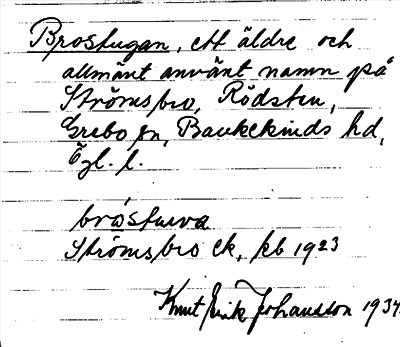 Brostugan, ett äldre och
allmänt använt namn på
Strömsbro, Rödsten,
Grebo sn, Bankekinds hd,
Ögl. l.
bròsturva
Strömsbro ek, kb 1923
Knut Erik Johansson 1934.